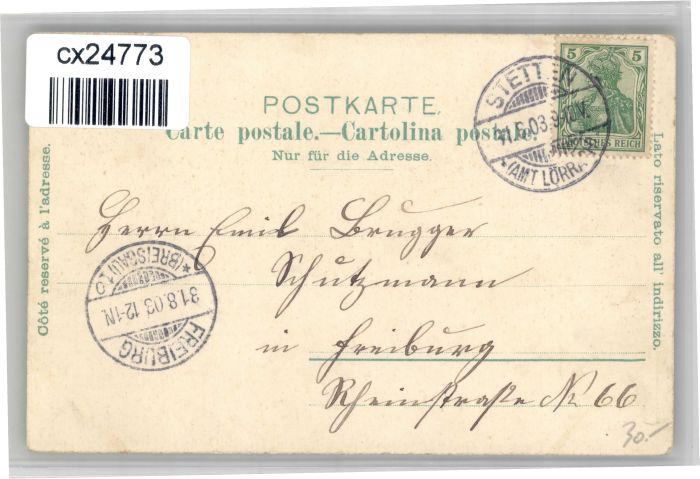 cx24773
5 5
DEUTSCHES REICH
POSTKARTE.
Carte postale.—Cartolina postale.
Nur für die Adresse.
Côté reservé à l'adresse.
Lato riservato all' indirizzo.
STETTEN
31.8.03. 9-10V.
*(AMT LÖRRACH)
Herrn Emil Brugger
Schutzmann
in Freiburg
Rheinstraße No 66
FREIBURG
31.8.03 12-1N.
*(BREISGAU) 1 o
30.-